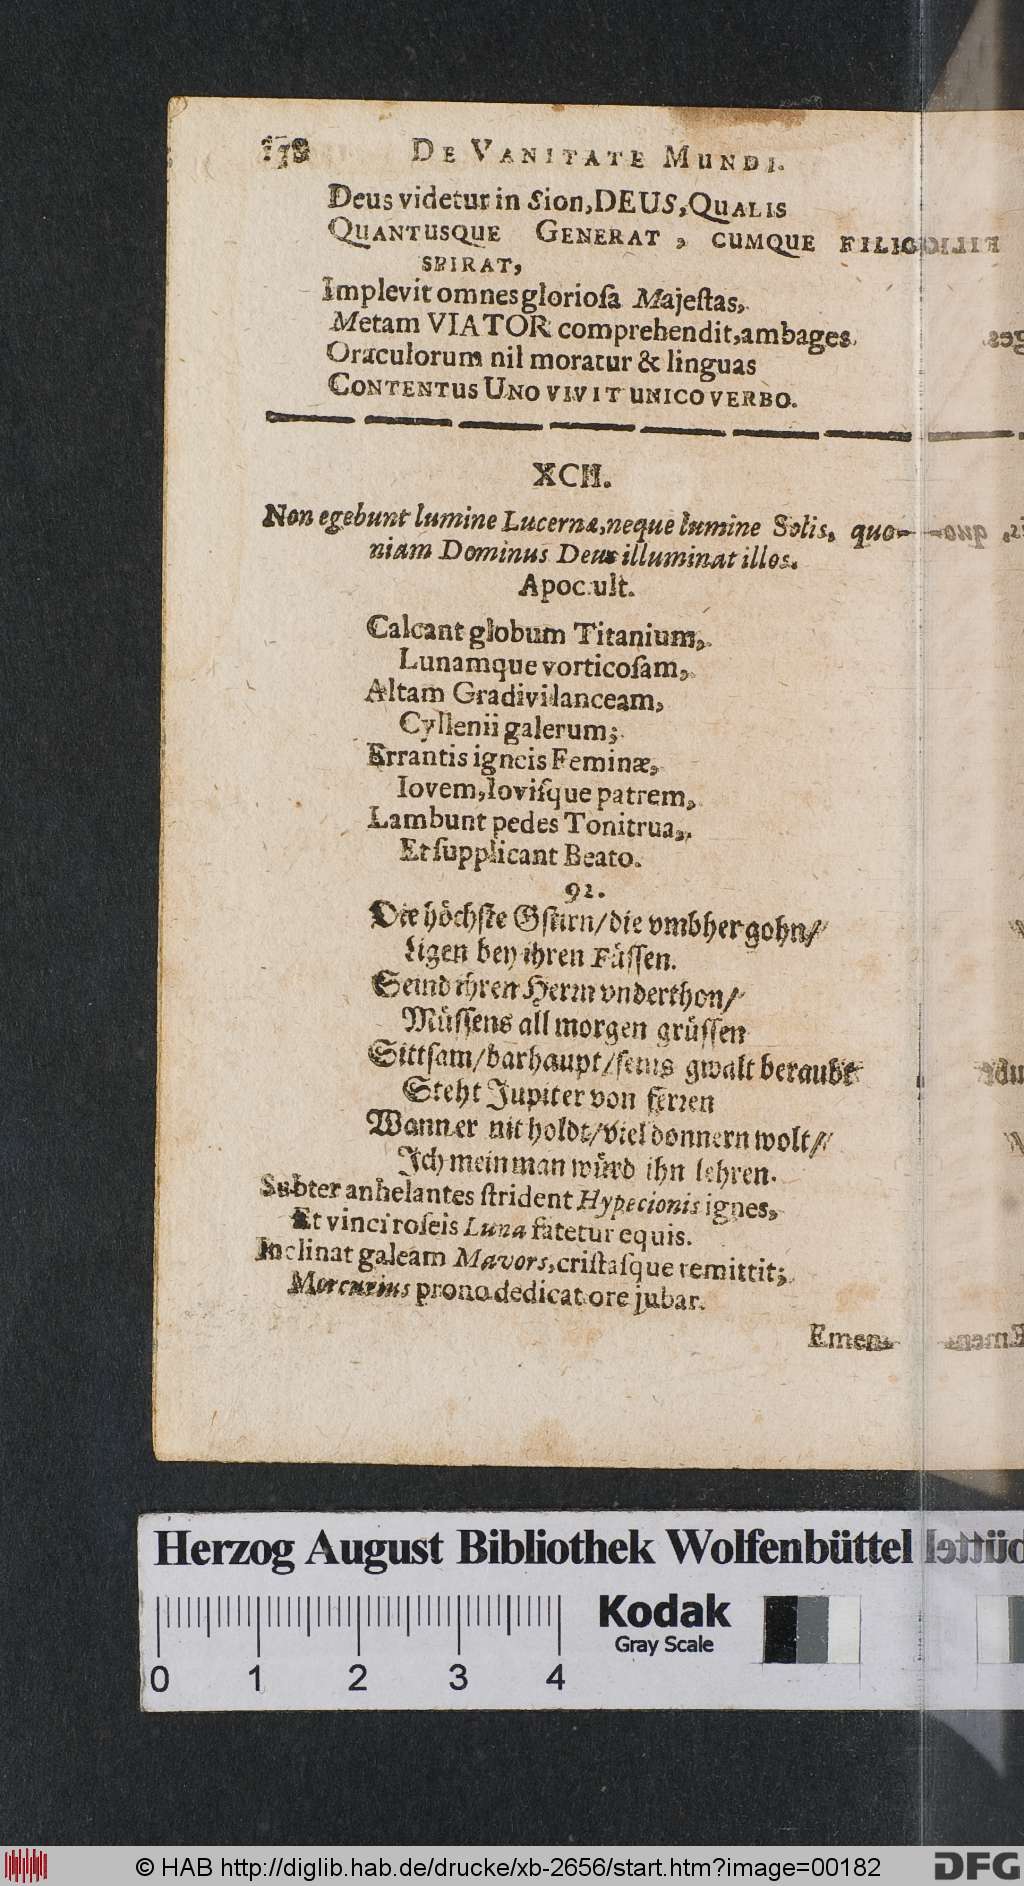 178 DE VANITATE MUNDI.
Deus videtur in Sion, DEUS, QUALIS
QUANTUSQUE GENERAT, CUMQUE FILIO
SPIRAT,
Implevit omnes glorioſa Majeſtas,
Metam VIATOR comprehendit, ambages
Oraculorum nil moratur & linguas
CONTENTUS UNO VIVIT UNICO VERBO.
XCII.
Non egebunt lumine Lucernæ, neque lumine Solis, quo-
niam Dominus Deus illuminat illos.
Apoc. ult.
Calcant globum Titanium,
Lunamque vorticoſam,
Altam Gradivi lanceam,
Cyllenii galerum;
Errantis igneis Feminæ,
Iovem, Ioviſque patrem,
Lambunt pedes Tonitrua,
Et ſupplicant Beato.
92.
Die höchſte Gſtirn/die vmbher gohn/
Ligen bey ihren Füſſen.
Seind ihren Herrn vnderthon/
Müſſens all morgen grüſſen
Sittſam/barhaupt/ſeins gwalt beraubt
Steht Jupiter von ferren
Wann er nit holdt/viel donnern wolt/
Ich mein man würd ihn lehren.
Subter anhelantes ſtrident Hyperionis ignes,
Et vinci roſeis Luna fatetur equis.
Inclinat galeam Mavors, criſtaſque remittit;
Mercurius prono dedicat ore jubar.
Emen-
Herzog August Bibliothek Wolfenbüttel
Kodak
Gray Scale
0 1 2 3 4
© HAB http://diglib.hab.de/drucke/xb-2656/start.htm?image=00182
DFG